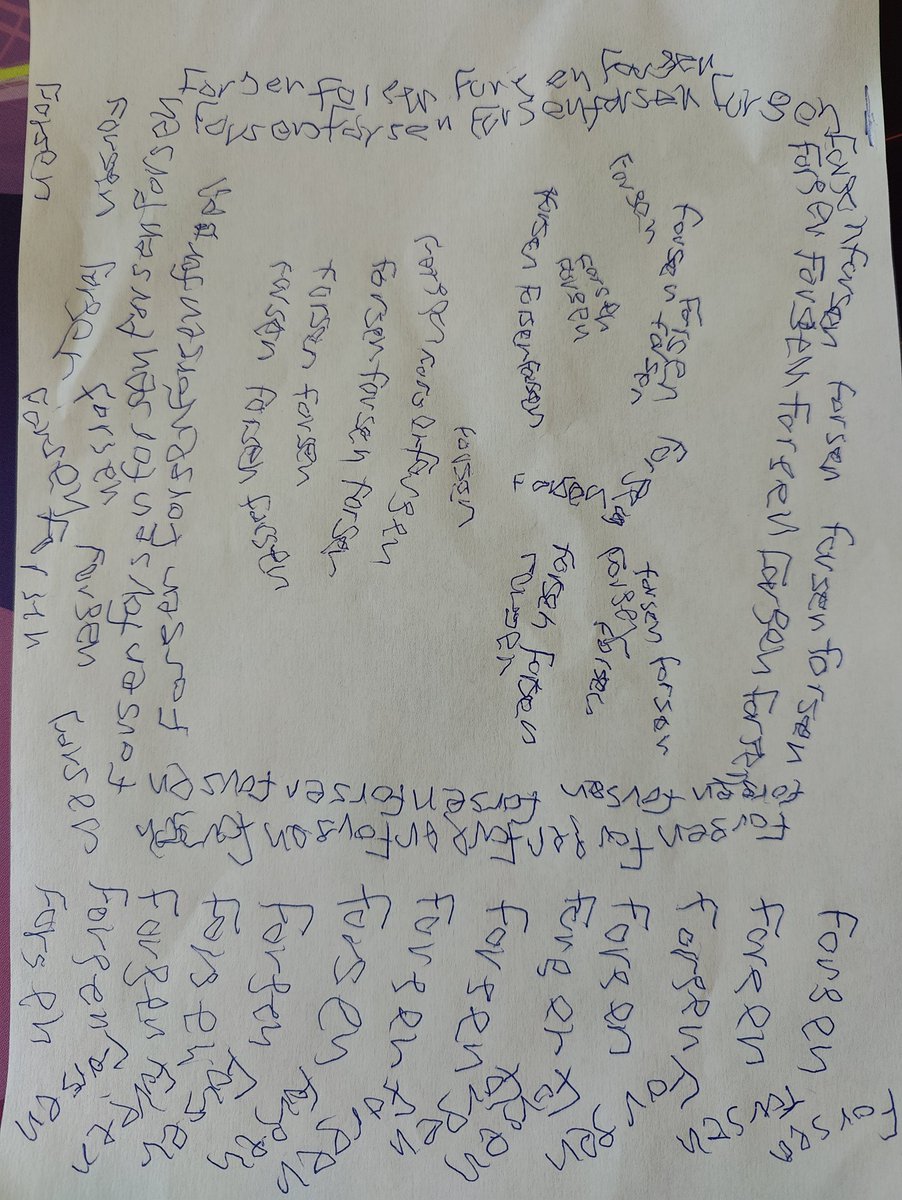 Forsen forsen forsen forsen forsen
forsen forsen forsen forsen forsen
Forsen forsen Forsen Forsen
Forsen forsen forsen forsen
Forsen forsen
Forsen forsen
forsen
Forsen
forsen forsen
forsen forsen
forsen
forsen
forsen forsen forsen
forsen forsen
forsen
forsen
forsen forsen forsen
forsen forsen
forsen forsen forsen
forsen forsen forsen forsen forsen
forsen forsen forsen forsen forsen forsen
Forsen forsen forsen forsen
forsen forsen forsen forsen
Forsen forsen
Forsen forsen
Forsen forsen
Forsen forsen
Forsen forsen
Forsen forsen
Forsen forsen
Forsen forsen
Forsen forsen
Forsen forsen
Forsen forsen
Forsen forsen
Forsen forsen
Forsen forsen
Forsen forsen forsen forsen forsen
Forsen forsen